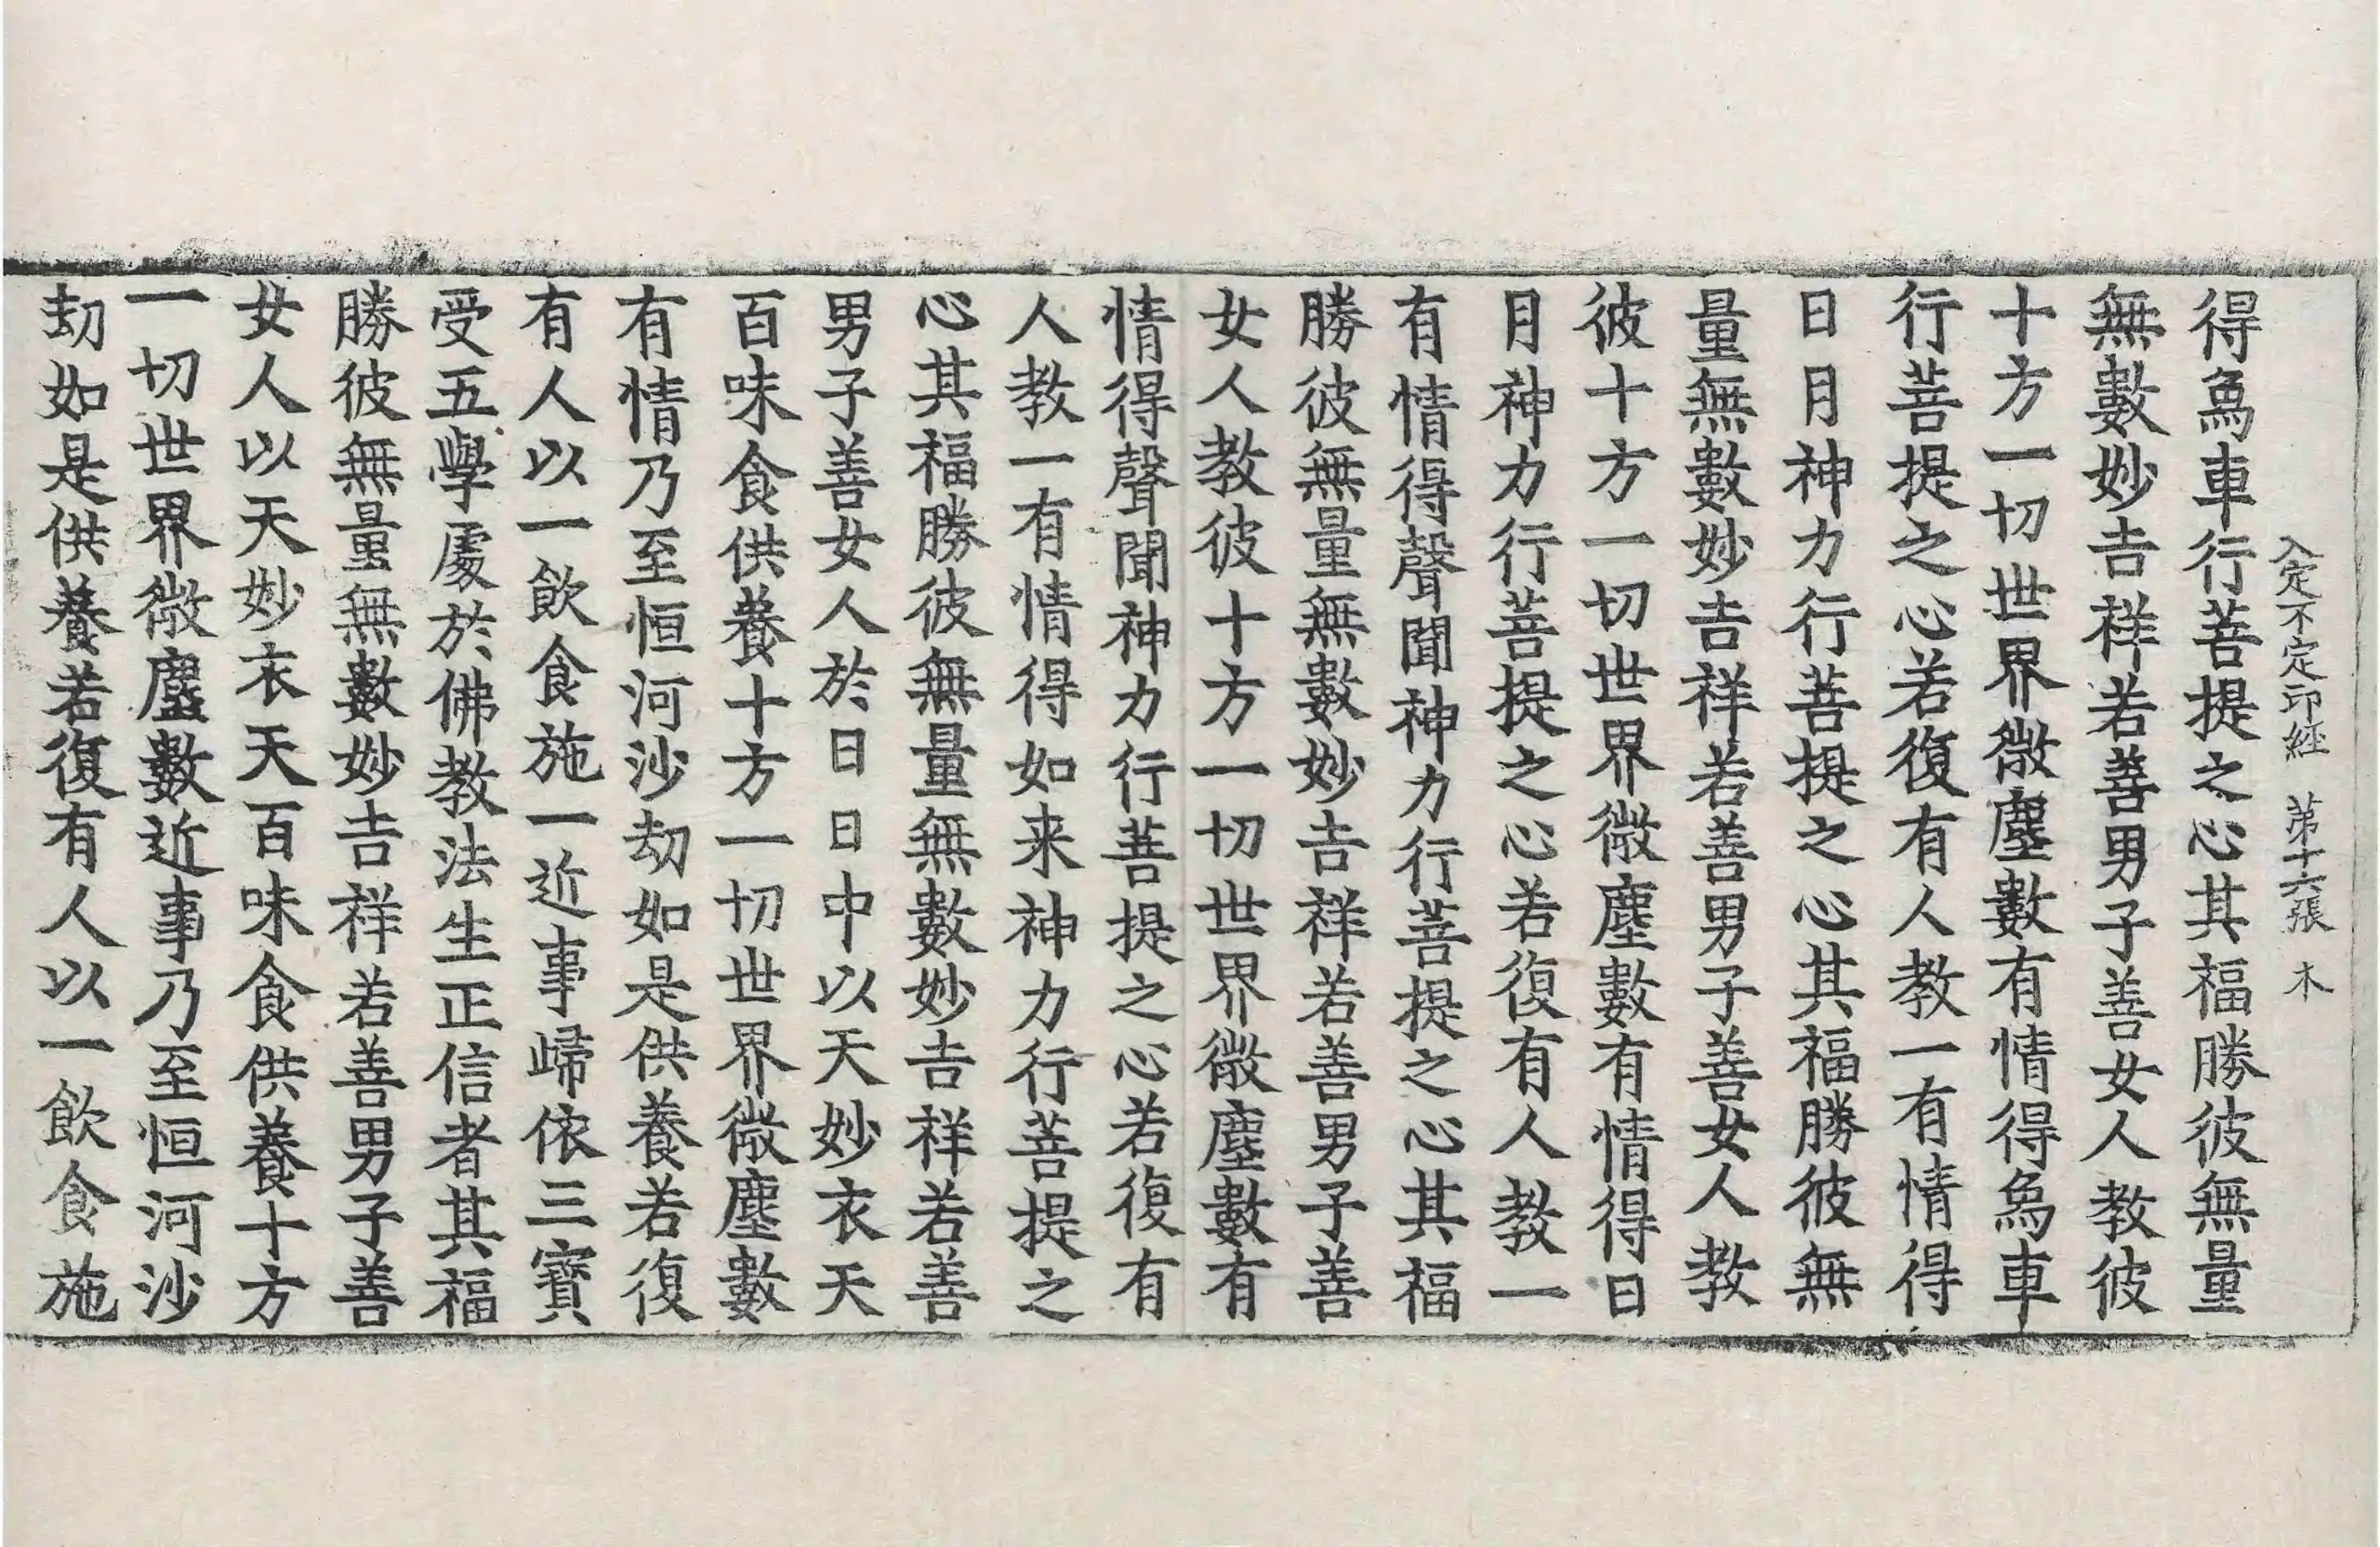 入定不定印經 第十六張 木
得象車行菩提之心其福勝彼無量
無數妙吉祥若善男子善女人教彼
十方一切世界微塵數有情得象車
行菩提之心若復有人教一有情得
日月神力行菩提之心其福勝彼無
量無數妙吉祥若善男子善女人教
彼十方一切世界微塵數有情得日
月神力行菩提之心若復有人教一
有情得聲聞神力行菩提之心其福
勝彼無量無數妙吉祥若善男子善
女人教彼十方一切世界微塵數有
情得聲聞神力行菩提之心若復有
人教一有情得如来神力行菩提之
心其福勝彼無量無數妙吉祥若善
男子善女人於日日中以天妙衣天
百味食供養十方一切世界微塵數
有情乃至恒河沙劫如是供養若復
有人以一飲食施一近事歸依三寶
受五學處於佛教法生正信者其福
勝彼無量無數妙吉祥若善男子善
女人以天妙衣天百味食供養十方
一切世界微塵數近事乃至恒河沙
劫如是供養若復有人以一飲食施